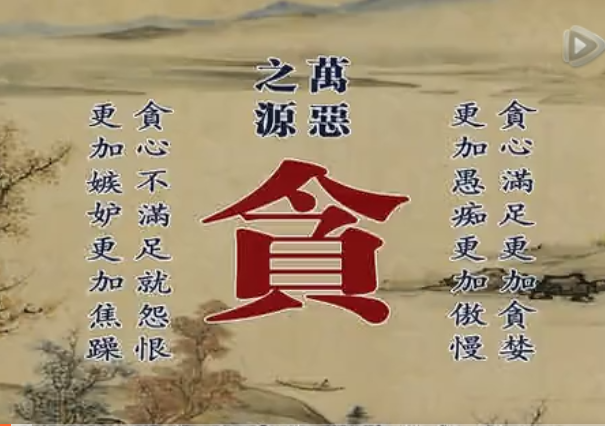 萬惡
之源
貪
貪心滿足更加貪婪
更加愚痴更加傲慢
貪心不滿足就怨恨
更加嫉妒更加焦躁